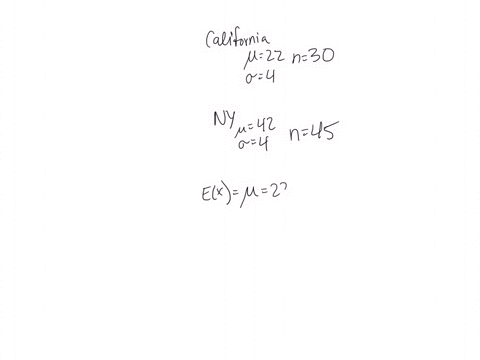 California
μ=22 n=30
σ=4
NY μ=42
σ=4 n=45
E(x)= μ =22